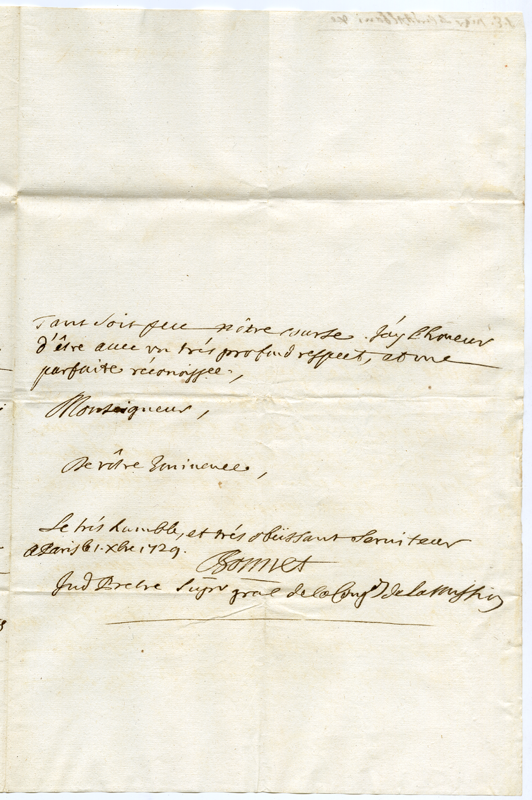 Tant soit peu nôtre course. J'ay L'honeur
d'être avec un trés profond respect, et une
parfaite reconoissce.,
Monseigneur,
De vôtre Eminence,
Le trés humble, et trés obéissant serviteur
A Paris le 1. Xbre 1729.
Bonnet
Ind Pretre Supr gral de la Cong de la Mission